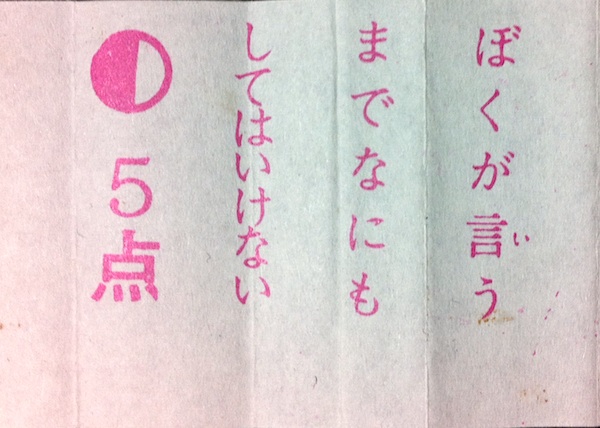 ぼくが言う
までなにも
してはいけない
◐ 5点